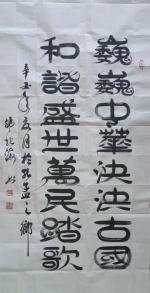 巍巍中華泱泱古國
和諧盛世萬民踏歌
辛丑年夏月於孔孟之鄉